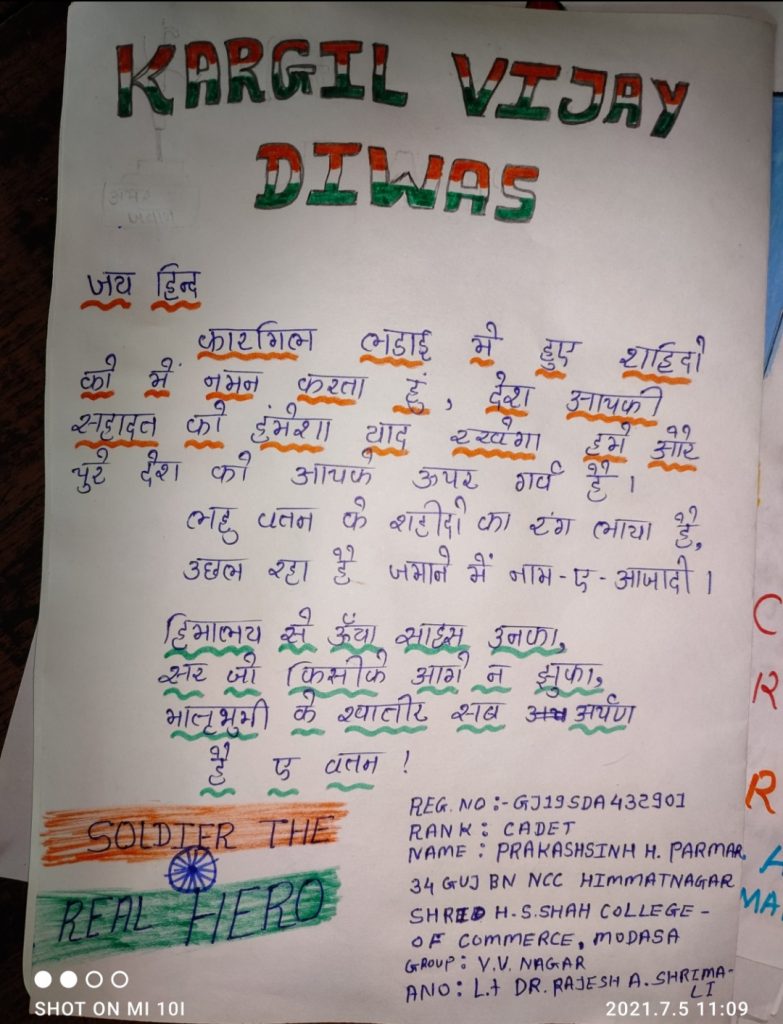 KARGIL VIJAY
DIWAS
अमर
जवान
जय हिन्द
कारगिल लडाइ मे हुए शहिदो
को में नमन करता हुं, देश आपकी
सहादत को हंमेशा याद रख्खेगा हमे और
पुरे देश को आपके ऊपर गर्व है।
लहु वतन के शहीदो का रंग लाया है,
उछल रहा है जमाने में नाम-ए-आजादी।
हिमालय से ऊँचा साहस उनका,
सर जो किसीके आगे न झुका,
मातृभुमी के खातीर सब अर्पण
है ए वतन!
SOLDIER THE
REAL HERO
REG. NO :- GJ19SDA432901
RANK : CADET
NAME : PRAKASHSINH H. PARMAR
34 GUJ BN NCC HIMMATNAGAR
SHREE H.S.SHAH COLLEGE-
OF COMMERCE, MODASA
GROUP : V.V. NAGAR
ANO : L.t DR. RAJESH A. SHRIMA-
LI
C
R
R
MA
SHOT ON MI 10I
2021.7.5 11:09